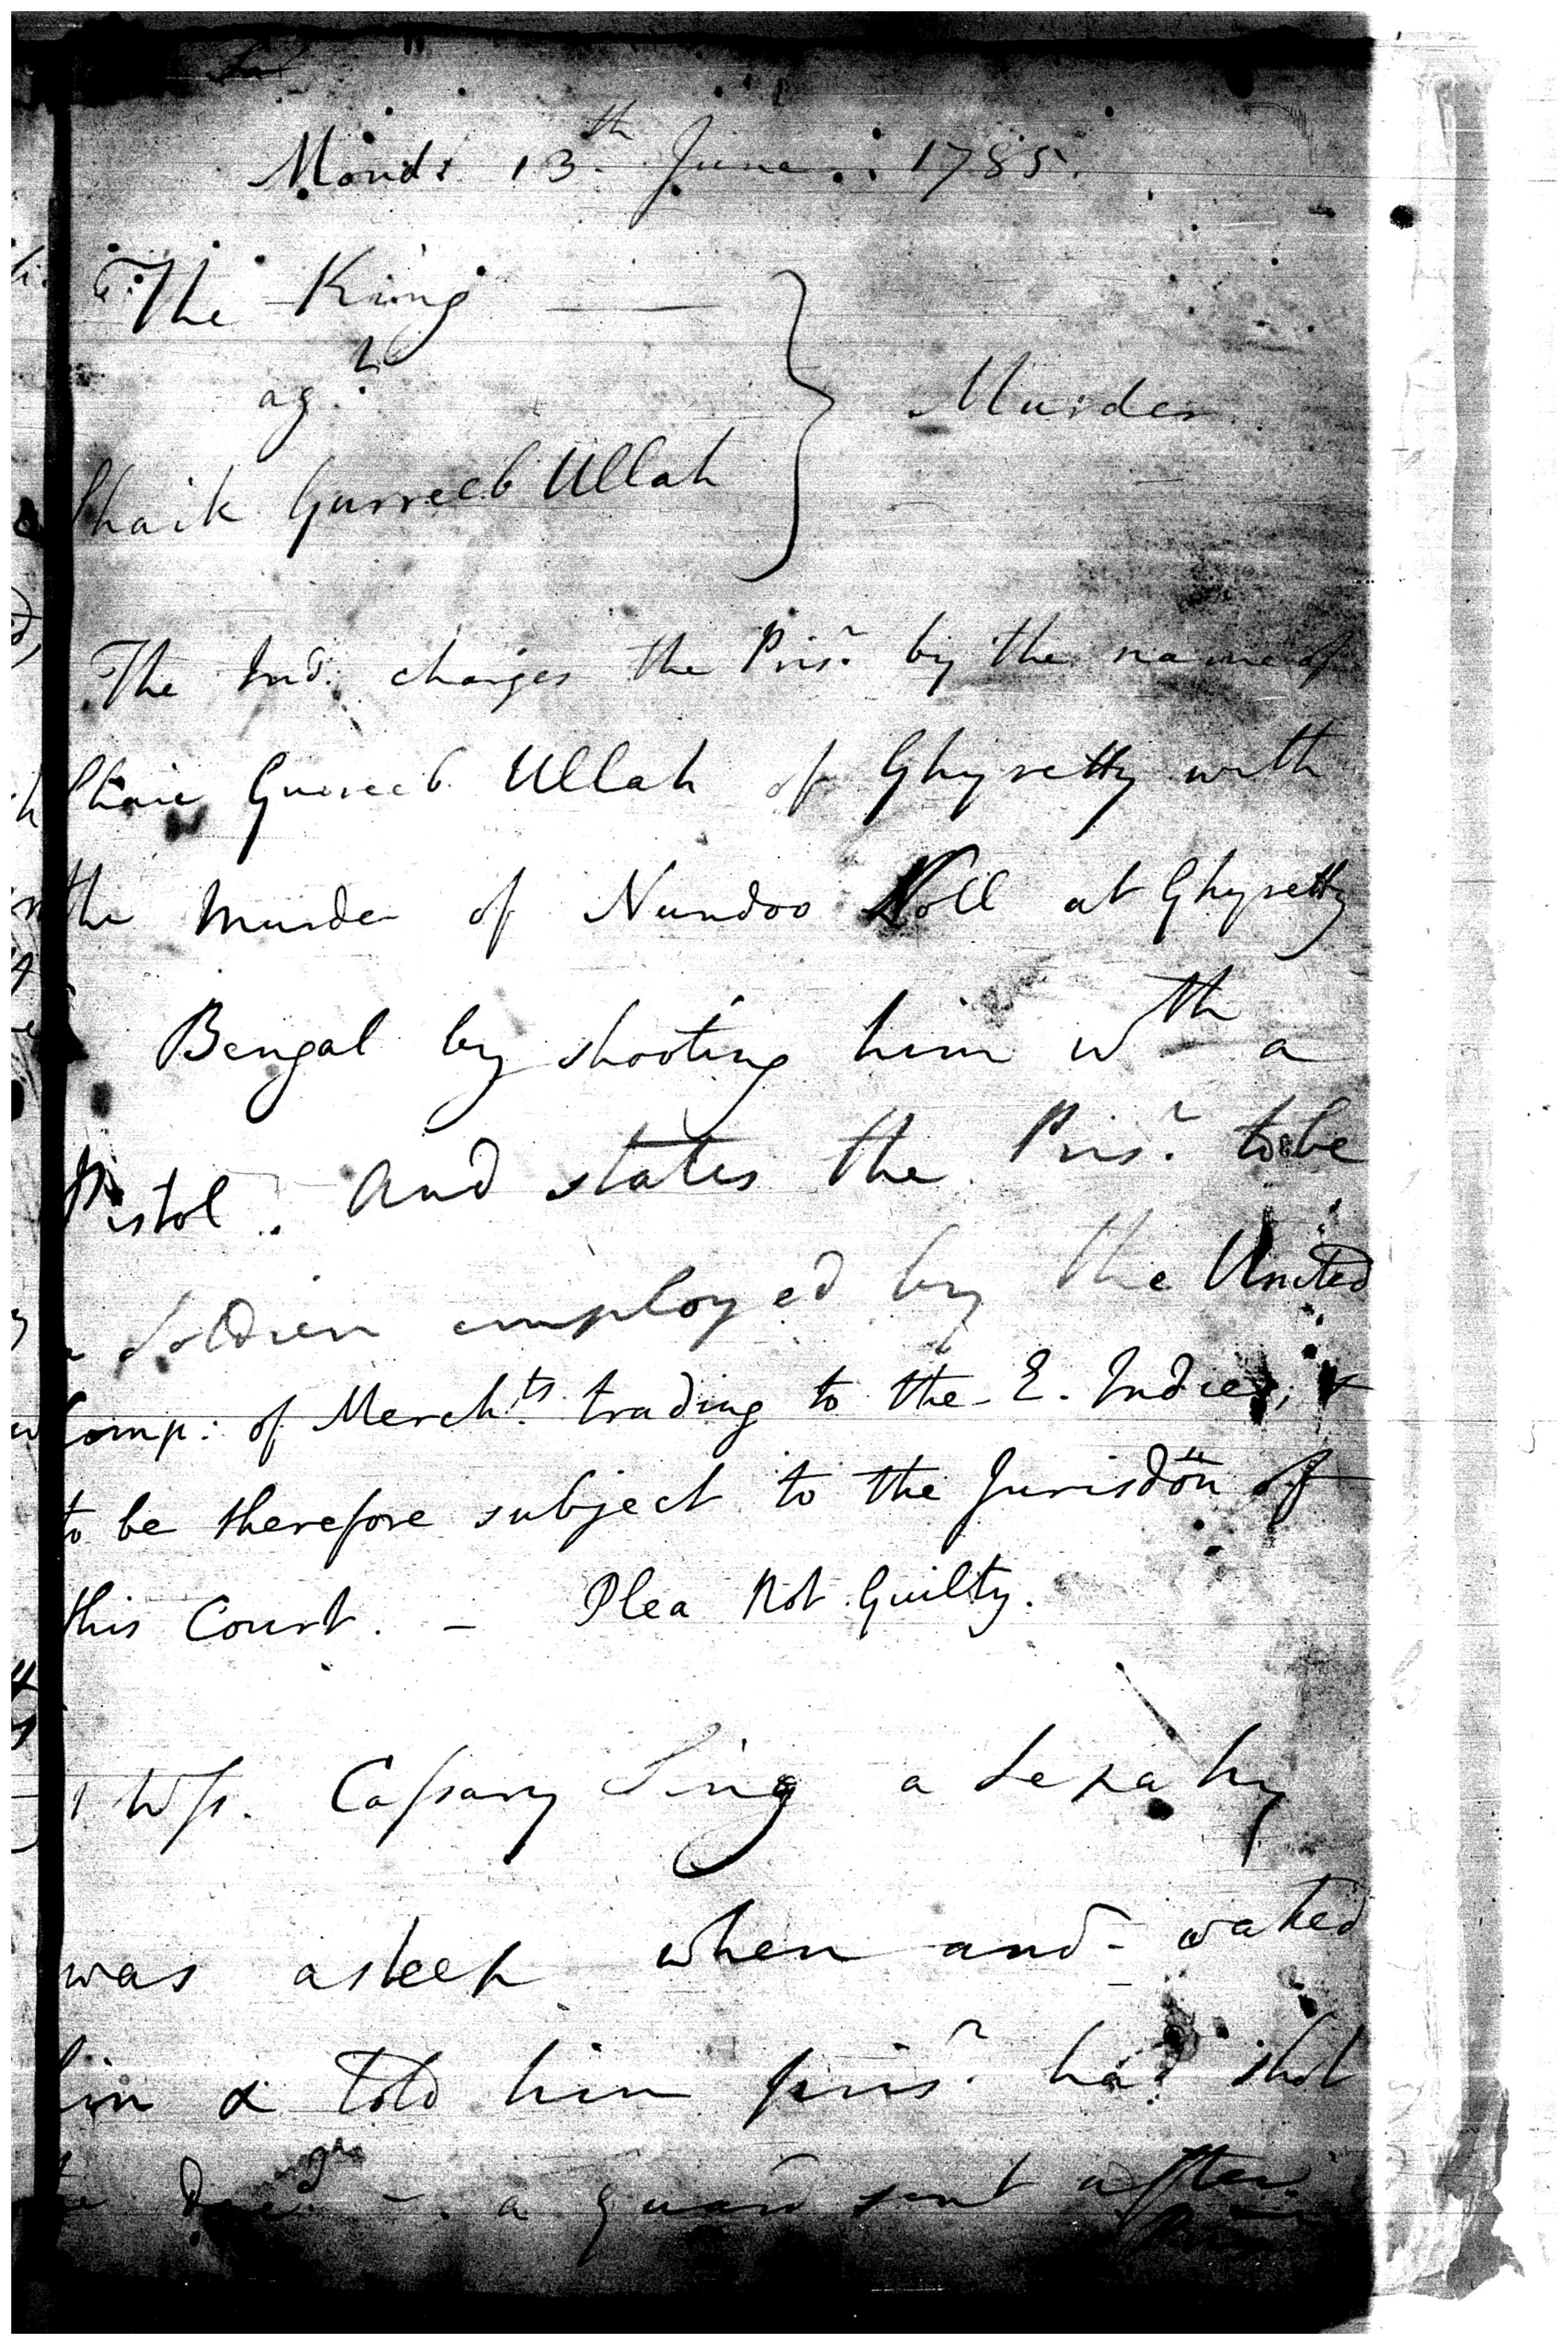 Mond: 13th June : 1785.
The King
agt
Shaik Gurreeb Ullah } Murder
The Ind: charges the Prisr by the name of
Shaic Gurreeb Ullah of Ghyretty with
the Murder of Nundoo Noll at Ghyretty
Bengal by shooting him wth a
Pistol. And states the Prisr to be
a Soldier employed by the United
Comp: of Merchts trading to the E. Indies, &
to be therefore subject to the Jurisdon of
this Court. - Plea Not Guilty.
1 Wss. Cassary Sing a Sepahy
was asleep when and waked
him & told him prisr had shot
the a guard sent after